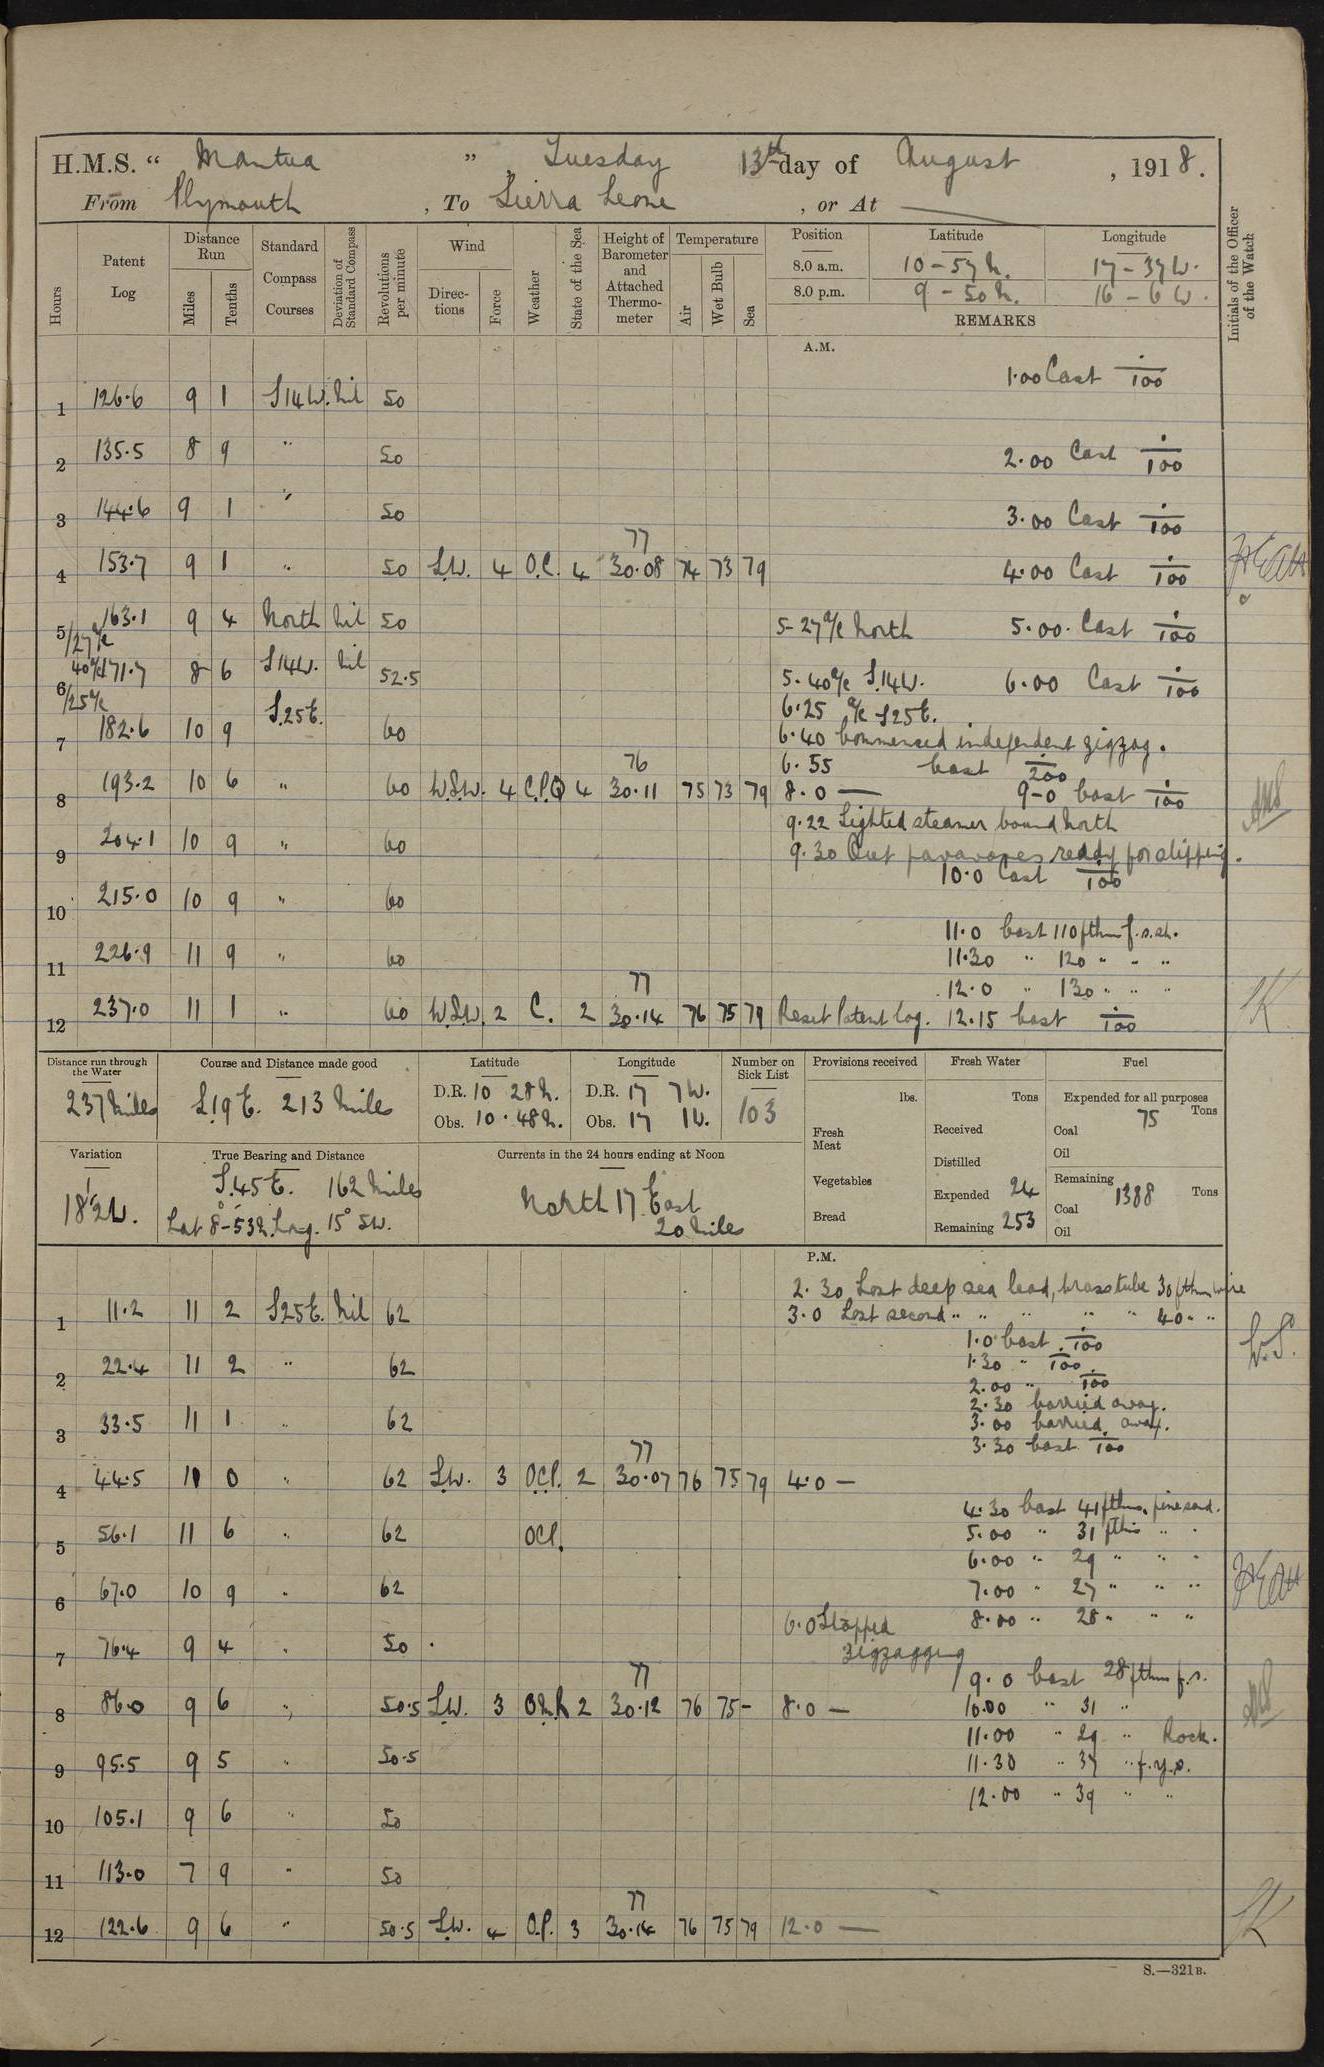 H.M.S. “ Mantua ” , Tuesday 13th day of August , 1918.
From Plymouth , To Sierra Leone , or At
Hours
Patent Log
Distance Run
Miles
Tenths
Standard Compass Courses
Deviation of Standard Compass
Revolutions per minute
Wind
Directions
Force
Weather
State of the Sea
Height of Barometer and Attached Thermometer
Temperature
Air
Wet Bulb
Sea
Position Latitude Longitude
8.0 a.m. 10 - 57 N. 17 - 37 W.
8.0 p.m. 9 - 50 N. 16 - 6 W.
REMARKS
Initials of the Officer of the Watch
A.M.
1.00 Cast ÷100
1 126.6 9 1 S14W. Nil 50
2 135.5 8 9 " 50 2.00 Cast ÷100
3 144.6 9 1 " 50 3.00 Cast ÷100
77
4 153.7 9 1 " 50 S.W. 4 O.C. 4 30.08 74 73 79 4.00 Cast ÷100
5 163.1 9 4 North Nil 50 5-27 a/c North 5.00. Cast ÷100
/27 a/c
40 a/c
6 171.7 8 6 S14W. Nil 52.5 5.40 a/c S.14W. 6.00 Cast ÷100
/25 a/c
6.25 a/c S25E.
7 182.6 10 9 S.25E. 60 6.40 Commenced independent zigzag.
76
6.55 Cast ÷200
8 193.2 10 6 " 60 W.S.W. 4 C.P.Q 4 30.11 75 73 79 8.0 — 9-0 Cast ÷100
9.22 Sighted steamer bound North
9 204.1 10 9 " 60 9.30 Out paravanes ready for slipping.
10.0 Cast ÷100
10 215.0 10 9 " 60
11.0 Cast 110 fthm f.s.sh.
11 226.9 11 9 " 60 11.30 " 120 " " "
77
12.0 " 130 " " "
12 237.0 11 1 " 60 W.S.W. 2 C. 2 30.14 76 75 79 Reset Patent Log. 12.15 Cast ÷100
Distance run through the Water
237 Miles
Course and Distance made good
S.19 E. 213 Miles
Latitude
D.R. 10 28 N.
Obs. 10. 48 N.
Longitude
D.R. 17 7 W.
Obs. 17 1 W.
Number on Sick List
103
Provisions received
lbs.
Fresh Meat
Vegetables
Bread
Fresh Water
Tons
Received
Distilled
Expended 24
Remaining 253
Fuel
Expended for all purposes
Tons
Coal 75
Oil
Remaining
Coal 1388 Tons
Oil
Variation
18½W.
True Bearing and Distance
S.45E. 162 Miles
Lat 8°-53 N. Long. 15° 5W.
Currents in the 24 hours ending at Noon
North 17 East
20 Miles
P.M.
2.30 Lost deep sea lead, brass tube 30 fthm wire
1 11.2 11 2 S25E. Nil 62 3.0 Lost second " " " " " 40 " "
1.0 Cast ÷100
1.30 " ÷100
2 22.4 11 2 " 62 2.00 " ÷100
2.30 Carried away.
3 33.5 11 1 " 62 3.00 Carried away.
3.30 Cast ÷100
77
4 44.5 11 0 " 62 S.W. 3 O.C.P. 2 30.07 76 75 79 4.0 —
4.30 Cast 41 fthms. fine sand.
5 56.1 11 6 " 62 OCP. 5.00 " 31 fthms " "
6.00 " 29 " " "
6 67.0 10 9 " 62 7.00 " 27 " " "
6.0 Stopped zigzagging
8.00 " 28 " " "
7 76.4 9 4 " 50
77
9.0 Cast 28 fthms f.s.
8 86.0 9 6 " 50.5 S.W. 3 2 30.12 76 75 - 8.0 — 10.00 " 31 "
11.00 " 29 " Rock.
9 95.5 9 5 " 50.5 11.30 " 37 " f.y.s.
12.00 " 39 " "
10 105.1 9 6 " 50
11 113.0 7 9 " 50
77
12 122.6 9 6 " 50.5 S.W. 4 O.P. 3 30.14 76 75 79 12.0 —
S.—321B.